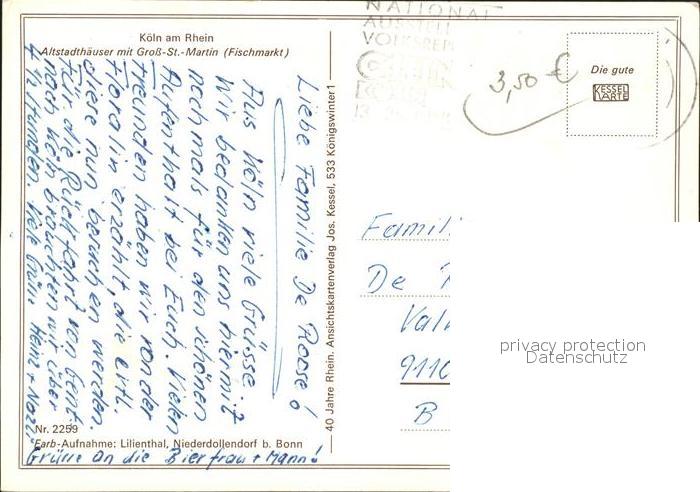 Köln am Rhein
Altstadthäuser mit Groß-St.-Martin (Fischmarkt)
Liebe Familie De Roose!
Aus Köln viele Grüsse.
Wir bedanken uns hiermit
nochmals für den schönen
Aufenthalt bei Euch. Vielen
Freunden haben wir von der
Floralin erzählt, die evtl.
diese nun besuchen werden.
Für die Rückfahrt von Gent
nach Köln brauchten wir über
4 1/2 Stunden. Viele Grüße Heinz +
Grüße an die Bierfrau + Mann!
Nr. 2259
Farb-Aufnahme: Lilienthal, Niederdollendorf b. Bonn
40 Jahre Rhein. Ansichtskartenverlag Jos. Kessel, 533 Königswinter 1
NATIONAT
AUSSTELL
VOLKSREP
KÖLN
3,50 €
Die gute
KESSEL
KARTE
Famili
De
Val
9110
B
privacy protection
Datenschutz